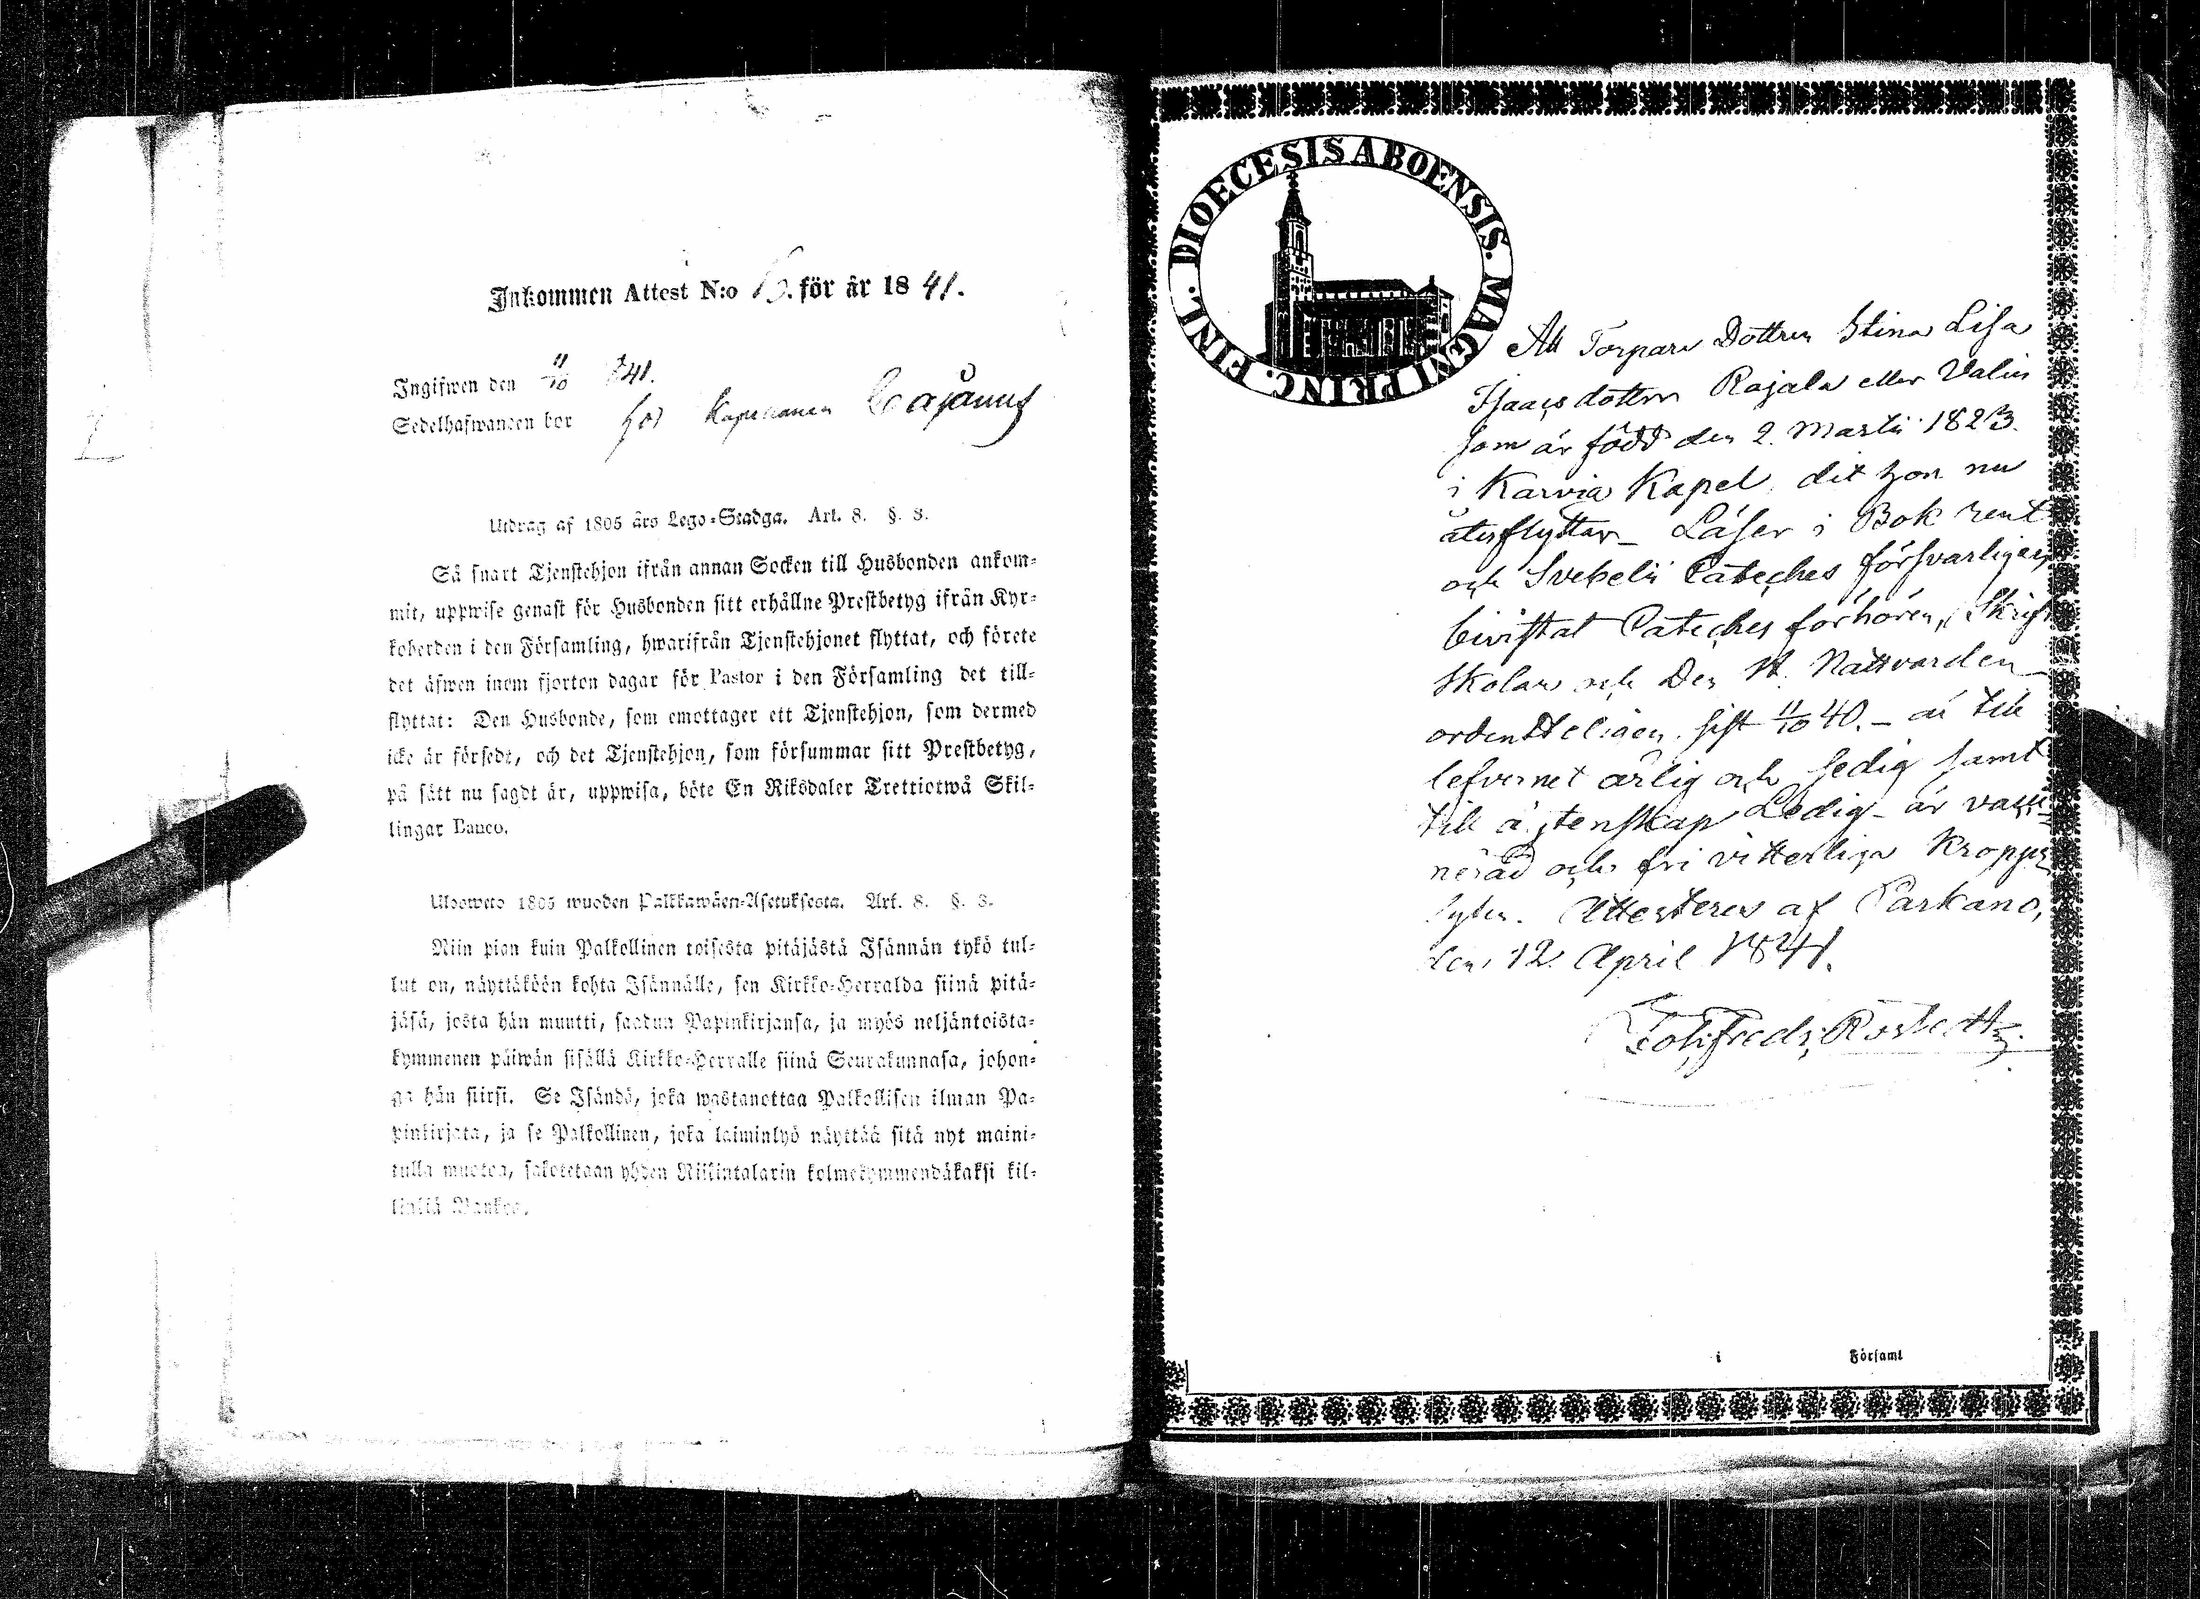 Inkommen Attest N:o 15. för år 1841.
Ingifwen den 11/10 841.
Sedelhafwanden bor hos Kapellanen Cajanus
Utdrag af 1805 års Lego-Stadga. Art. 8. §. 8.
Så snart Tjenstehjon ifrån annan Socken till Husbonden ankom-
mit, uppwise genast för Husbonden sitt erhållne Prestbetyg ifrån Kyr-
koherden i den Församling, hwarifrån Tjenstehjonet flyttat, och förete
det äfwen inom fjorton dagar för Pastor i den Församling det till-
flyttat: Den Husbonde, som emottager ett Tjenstehjon, som dermed
icke är försedt, och det Tjenstehjon, som försummar sitt Prestbetyg,
på sätt nu sagdt är, uppwisa, böte En Riksdaler Trettiotwå Skil-
lingar Banco.
Ulosweto 1805 wuoden Palkkawäen-Asetuksesta. Art. 8. §. 8.
Niin pian kuin Palkollinen toisesta pitäjästä Isännän tykö tul-
lut on, näyttäköön kohta Isännälle, sen Kirkko-Herralda siinä pitä-
jäsä, josta hän muutti, saadun Papinkirjansa, ja myös neljäntoista-
kymmenen päiwän sisällä Kirkko-Herralle siinä Seurakunnasa, johon-
ga hän siirsi. Se Isändä, joka wastanottaa Palkollisen ilman Pa-
pinkirjata, ja se Palkollinen, joka laiminlyö näyttää sitä nyt maini-
tulla muotoa, sakotetaan yhden Riikintalarin kolmekymmendäkaksi kil-
linkiä Bankos.
DIOECESIS ABOENSIS. MAGNI PRINC. FINL.
Att Torpare Dottren Stina Lisa
Isaacsdotter Rajala eller Valin
som är född den 2. Martii 1823.
i Karvia Kapel, dit hon nu
återflyttar_ Läser i Bok rent
och Svebelii Cateches försvarligen,
bivistat Cateches förhören, Skrift
skolar och Den H. Nattvarden
ordenteligen sist 11/10 40. _ är till
lefvernet ärlig och sedig samt
till ägtenskap Ledig _ är vacci-
nerad och fri vitterliga Kropps
lyten. Attesteras af Parkano,
den 12 April 1841.
Joh: Fredr: Rostedt
i Församl